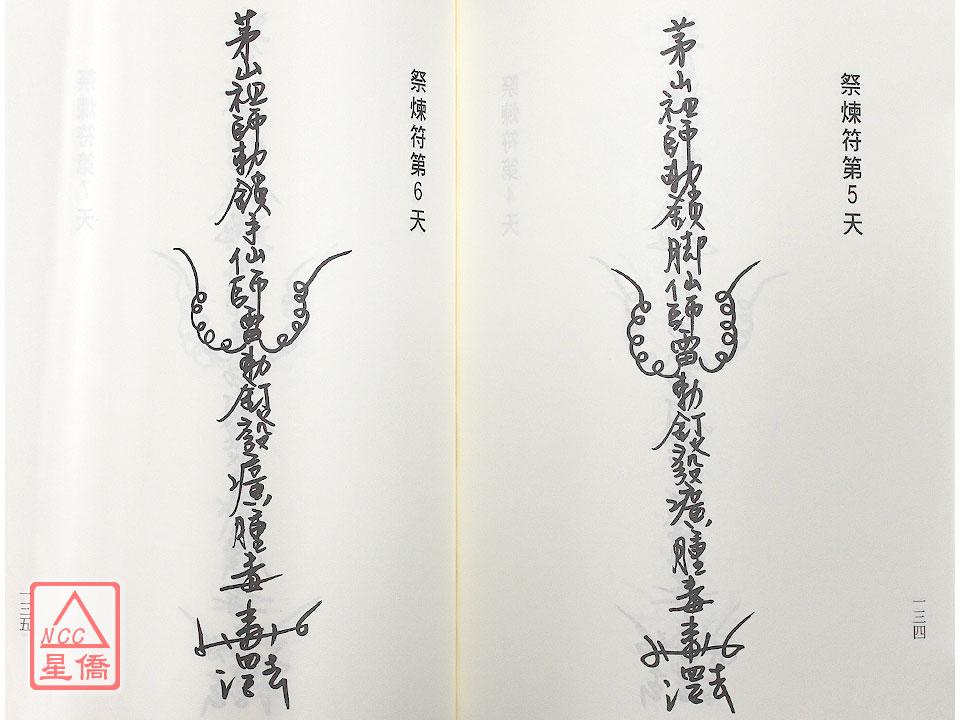 祭煉符第5天
茅山祖師勅鎖脚仙師雷勅釘發瘟腫毒
一三四
祭煉符第6天
茅山祖師勅鎖手仙師雷勅釘發瘟腫毒
一三五
NCC
星僑